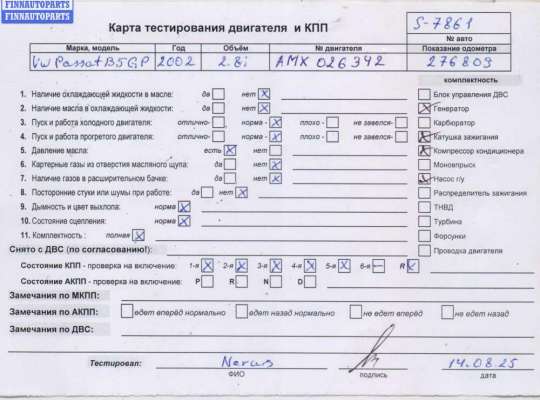 FINNAUTOPARTS
FINNAUTOPARTS
Карта тестирования двигателя и КПП
S-7861
№ авто
Марка, модель Год Объём № двигателя Показание одометра
VW Passat B5GP 2002 2.8i AMX 026342 276809
комплектность
1. Наличие охлаждающей жидкости в масле: да нет X
Блок управления ДВС
2. Наличие масла в охлаждающей жидкости: да нет X
X Генератор
3. Пуск и работа холодного двигателя: отлично- норма - X плохо - не завелся-
Карбюратор
4. Пуск и работа прогретого двигателя: отлично- норма - X плохо - не завелся-
X Катушка зажигания
5. Давление масла: есть X нет
X Компрессор кондиционера
6. Картерные газы из отверстия масляного щупа: да нет X
Моновпрыск
7. Наличие газов в расширительном бачке: да нет X
X Насос г/у
8. Посторонние стуки или шумы при работе: да нет X
Распределитель зажигания
9. Дымность и цвет выхлопа: норма X
ТНВД
10. Состояние сцепления: норма X
Турбина
11. Комплектность : полная X
Форсунки
Снято с ДВС (по согласованию!):
Проводка двигателя
Состояние КПП - проверка на включение: 1-я X 2-я X 3-я X 4-я X 5-я X 6-я — R X
Состояние АКПП - проверка на включение: P R N D
Замечания по МКПП:
Замечания по АКПП: едет вперёд нормально едет назад нормально не едет вперёд не едет назад
Замечания по ДВС:
Тестировал: 14.08.25
ФИО подпись дата